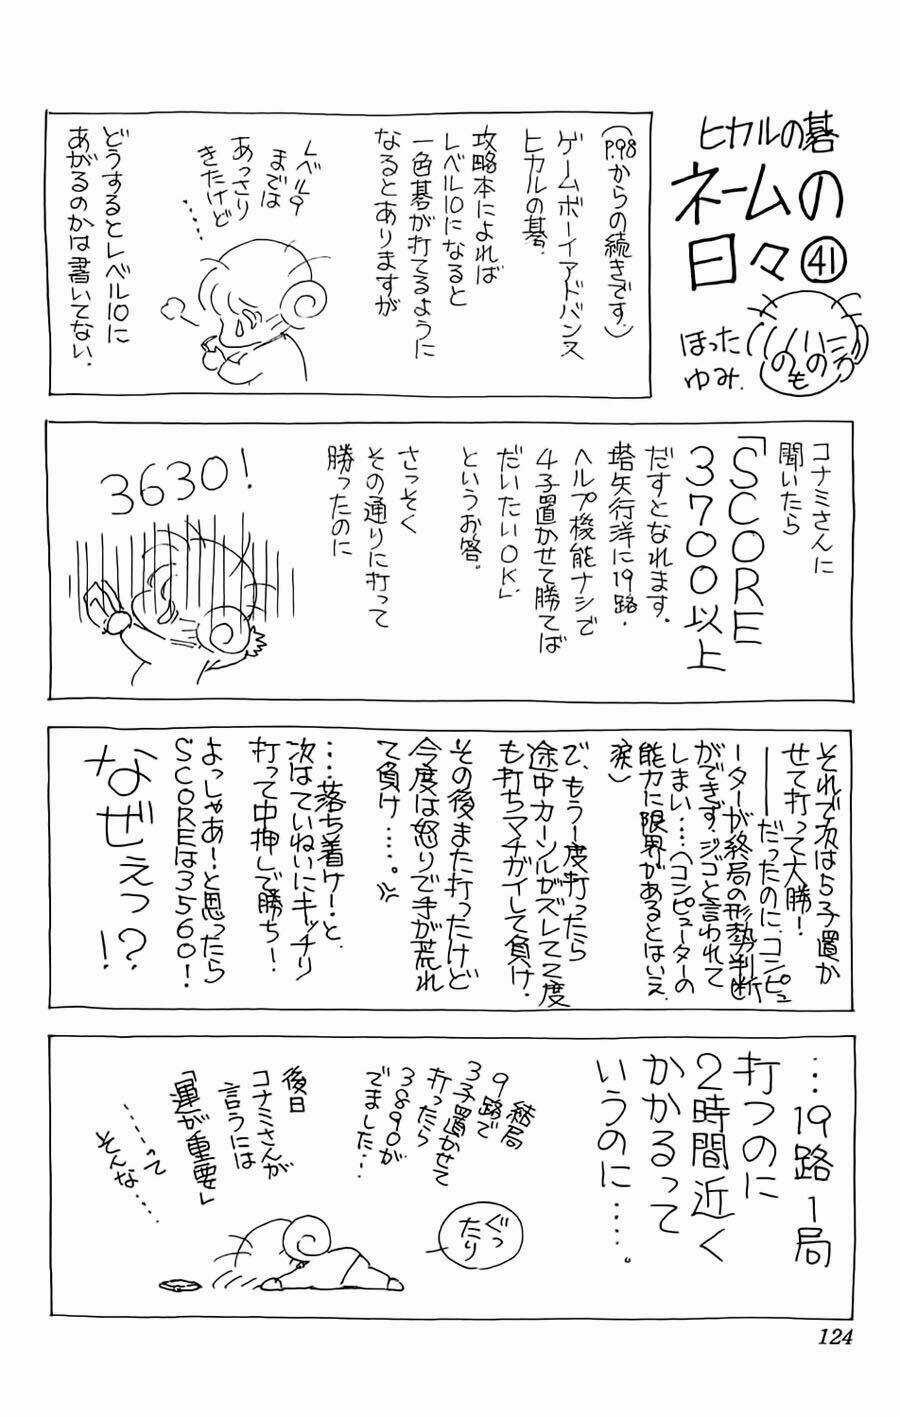 ヒカルの碁
ネームの
日々㊶
ほった
ゆみ.
のもの
(P.98からの続きです.)
ゲームボーイアドバンス
ヒカルの碁.
攻略本によれば
レベル10になると
一色碁が打てるように
なるとありますが
レベル9
までは
あっさり
きたけど
……
どうするとレベル10に
あがるのかは書いてない.
コナミさんに
聞いたら
「SCORE
3700以上
だすとなれます.
塔矢行洋に19路.
ヘルプ機能ナシで
4子置かせて勝てば
だいたいOK」
というお答.
さっそく
その通りに打って
勝ったのに
3630!
それで次は5子置か
せて打って大勝!
――だったのに、コンピュ
ーターが終局の形勢判断
ができず、ジゴと言われて
しまい……(コンピューターの
能力に限界があるとはいえ
涙)
で、もう1度打ったら
途中カーソルがズレて2度
も打ちマチガイして負け.
その後また打ったけど
今度は怒りで手が荒れ
て負け……。
…落ち着け!と、
次はていねいにキッチリ
打って中押しで勝ち!
よっしゃあ!と思ったら
SCOREは3560!
なぜぇっ!?
…19路1局
打つのに
2時間近く
かかるって
いうのに……。
結局
9路で
3子置かせて
打ったら
3890が
でました…
ぐっ
たり
後日
コナミさんが
言うには
「運が重要」
……って
そんな…
124